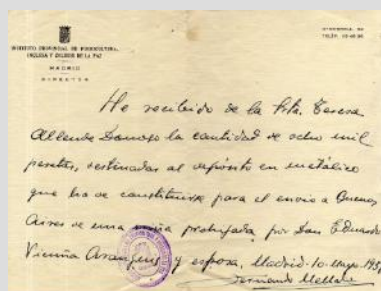 INSTITUTO PROVINCIAL DE PUERICULTURA,
INCLUSA Y COLEGIO DE LA PAZ
MADRID
DIRECTOR
He recibido de la Srta. Teresa
Allende Donoso la cantidad de ocho mil
pesetas, destinadas al depósito en metálico
que ha de constituirse para el envío a Buenos
Aires de una niña prohijada por Don Eduardo
Vicuña Aranguiz y esposa. Madrid. 10. mayo
Fernando